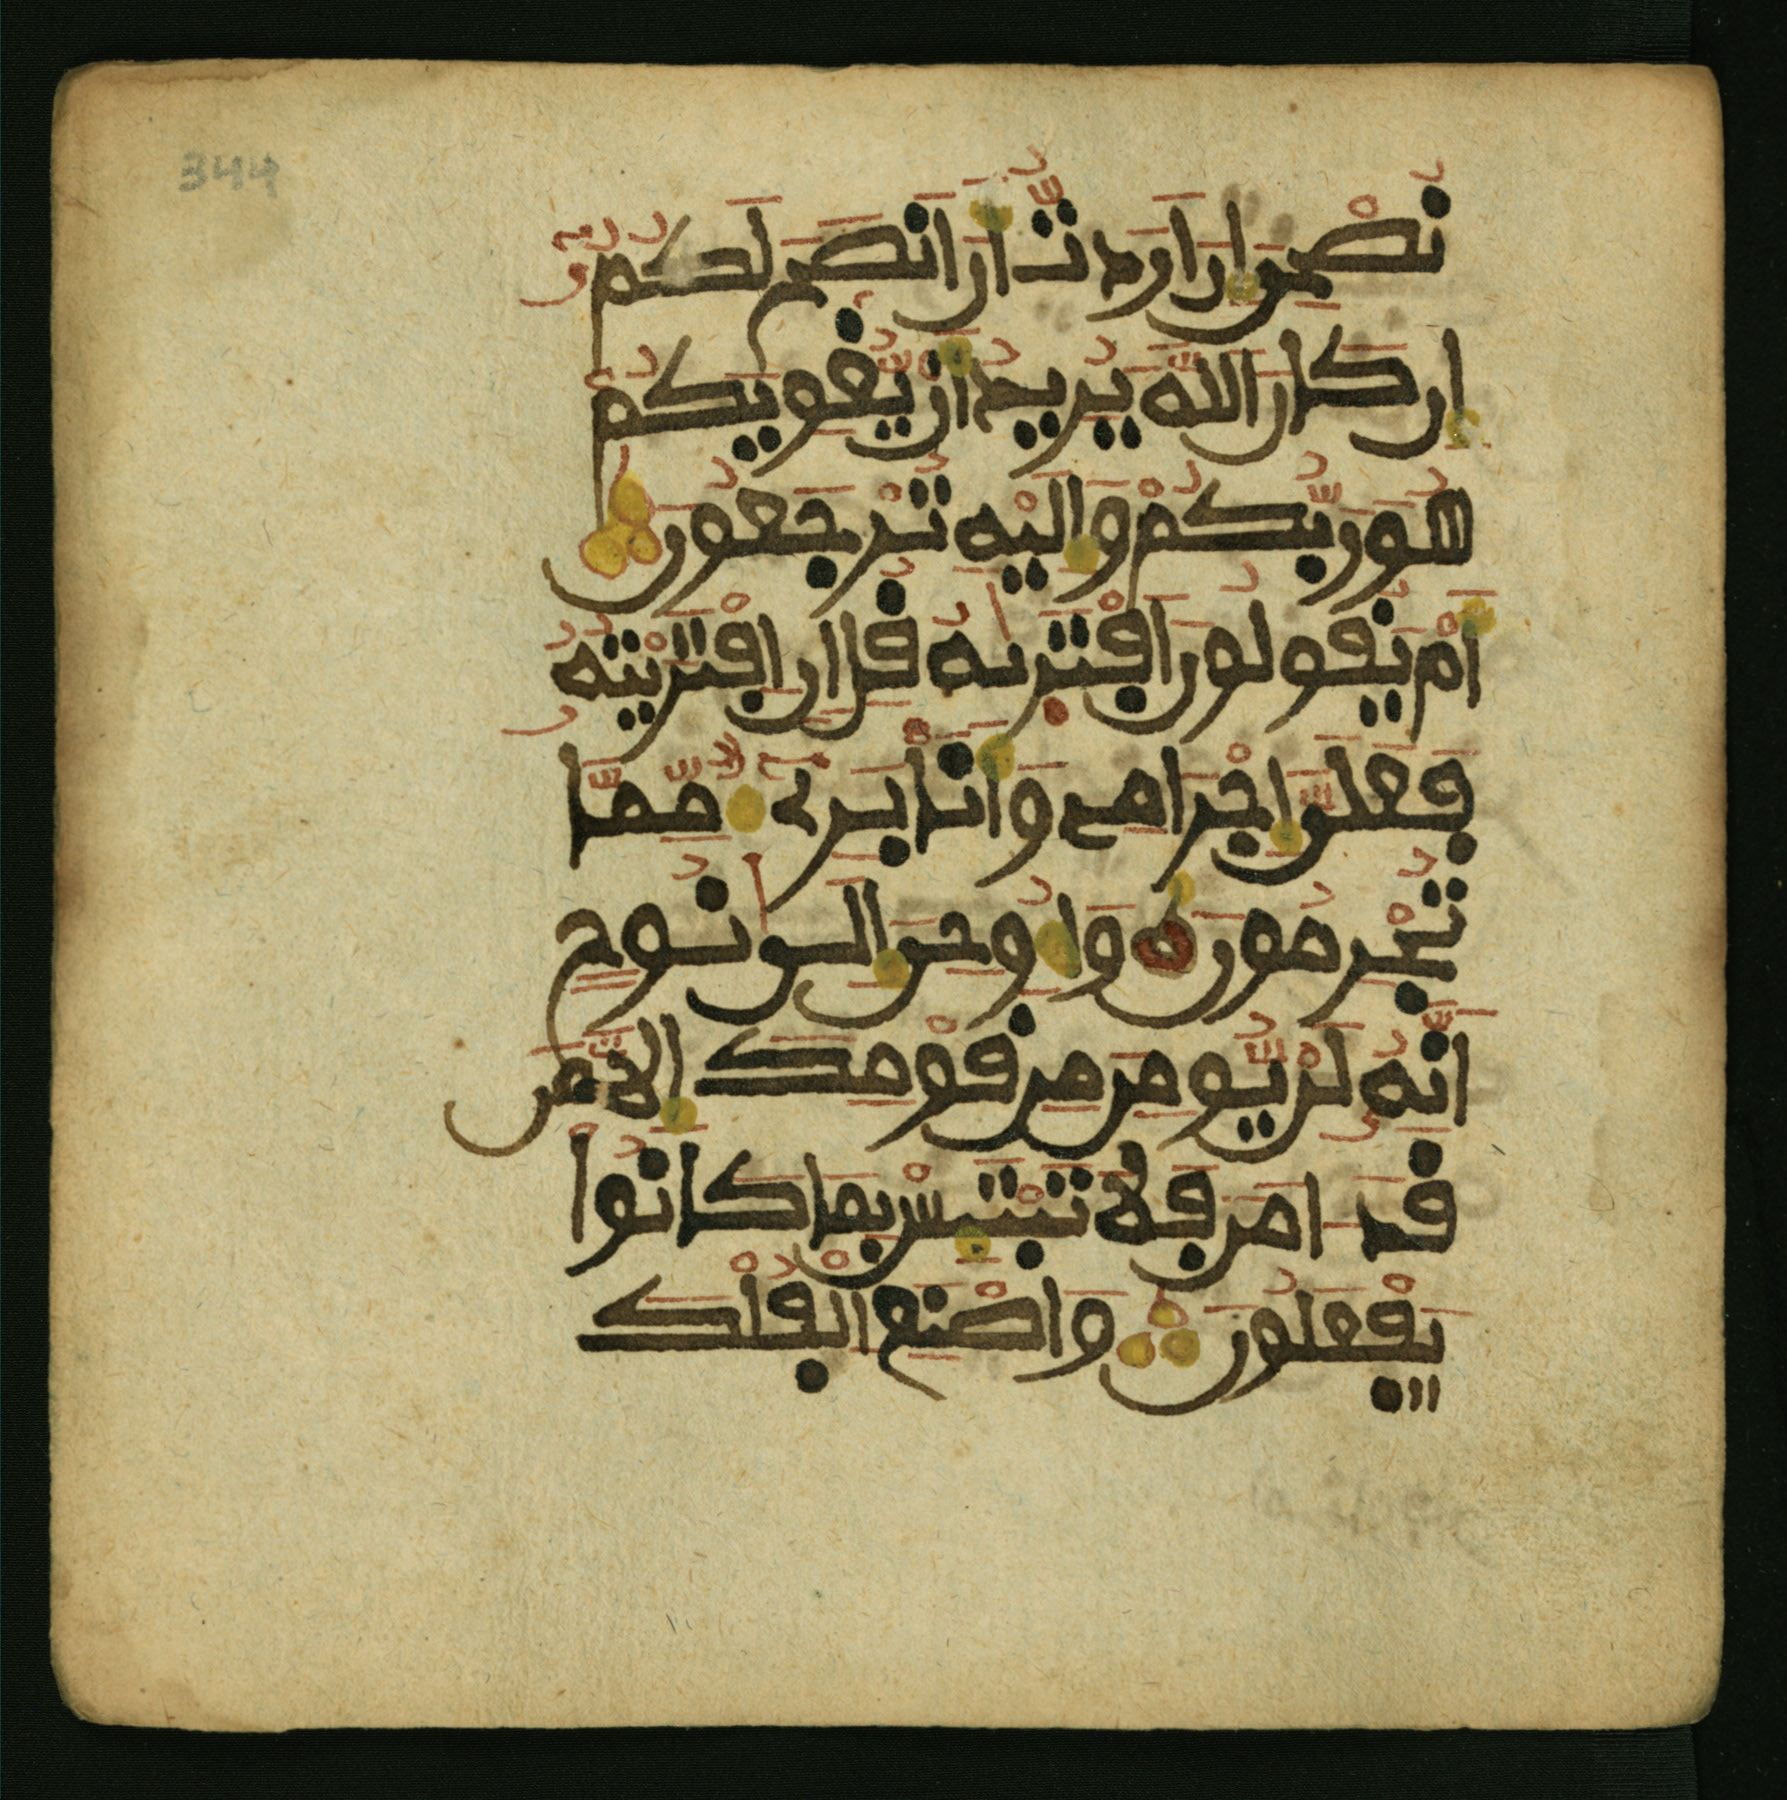 344
نُصْحِيَ إِنَ اَرَدتُّ أَنَ اَنصَحَ لَكُمُۥٓ
إِن كَانَ اَللَّهُ يُرِيدُ أَنْ يُّغْوِيَكُمْ
هُوَ رَبُّكُمْ وَإِلَيْهِ تُرْجَعُونَ
أَمْ يَقُولُونَ اَفْتَرٜىٰهُ قُلِ اِنِ اِفْتَرَيْتُهُۥ
فَعَلَيَّ إِجْرَامِے وَأَنَا بَرِےٓءٌ مِّمَّا
تُجْرِمُونَ وَأُوحِيَ إِلَىٰ نُوحٍ
اَنَّهُۥ لَنْ يُّومِنَ مِن قَوْمِكَ إِلَّا مَن
قَدَ اٰمَنَ فَلَا تَبْتَئِسْ بِمَا كَانُواْ
يَفْعَلُونَ وَاصْنَعِ اِلْفُلْكَ